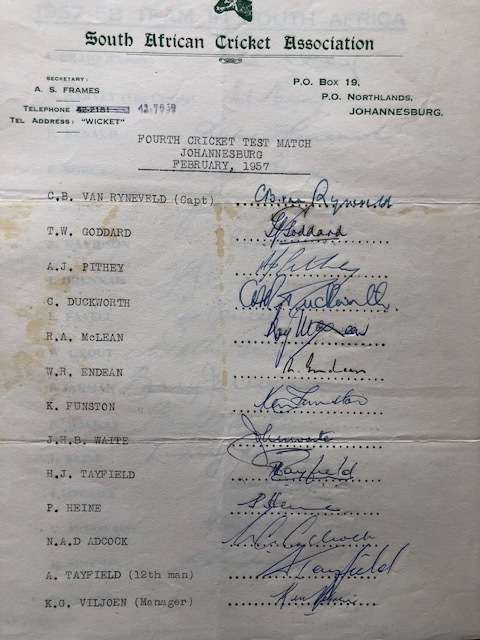 South African Cricket Association
SECRETARY:
A. S. FRAMES
TELEPHONE 42-2181 42.7959
TEL ADDRESS: "WICKET"
P.O. BOX 19,
P.O. NORTHLANDS,
JOHANNESBURG.
FOURTH CRICKET TEST MATCH
JOHANNESBURG
FEBRUARY, 1957
C.B. VAN RYNEVELD (Capt) C B van Ryneveld
T.W. GODDARD Goddard
A.J. PITHEY AJ Pithey
C. DUCKWORTH Duckworth
R.A. McLEAN Roy McLean
W.R. ENDEAN R. Endean
K. FUNSTON Ken Funston
J.H.B. WAITE JHBWaite
H.J. TAYFIELD Tayfield
P. HEINE P Heine
N.A.D ADCOCK Adcock
A. TAYFIELD (12th man) A Tayfield
K.G. VILJOEN (Manager) Ken Viljoen